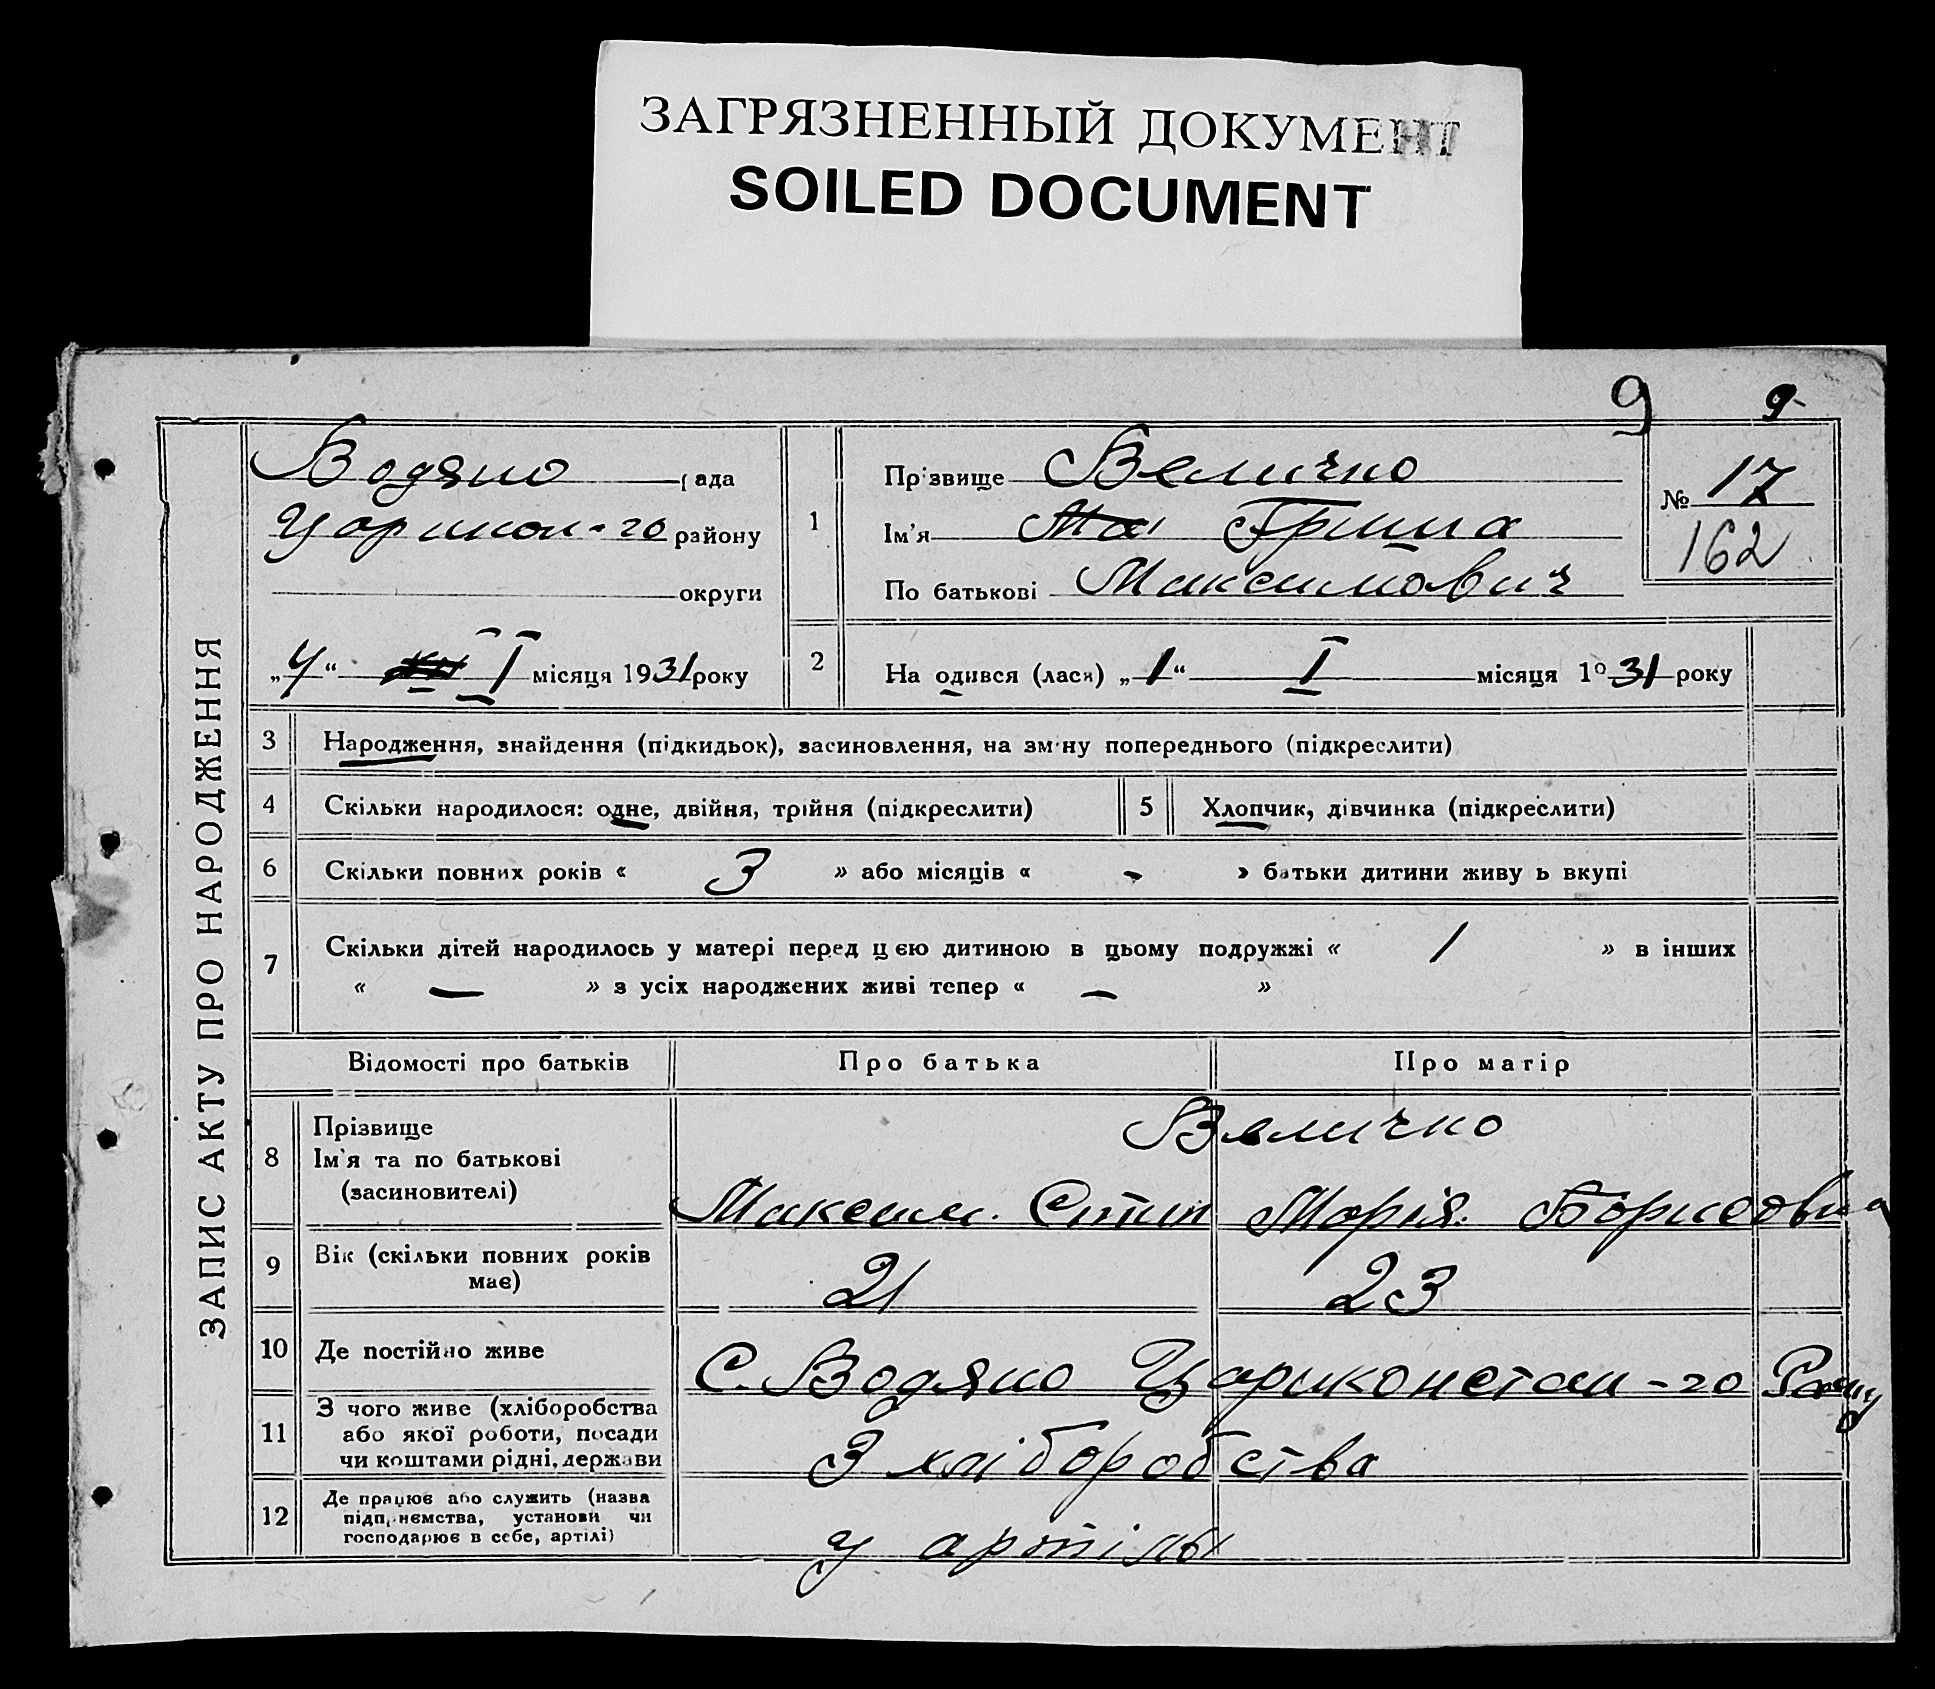 ЗАГРЯЗНЕННЫЙ ДОКУМЕНТ
SOILED DOCUMENT
9 9-
ЗАПИС АКТУ ПРО НАРОДЖЕННЯ
Водяно рада
району
округи
„4“ I місяця 1931 року
1
Прізвище Величко
Ім'я Гриша
По батькові Максимович
№ 17
162
2
Народився (лася) „1“ I місяця 1931 року
3 Народження, знайдення (підкидьок), засиновлення, на зміну попереднього (підкреслити)
4 Скільки народилося: одне, двійня, трійня (підкреслити)
5 Хлопчик, дівчинка (підкреслити)
6 Скільки повних років « 3 » або місяців « - » батьки дитини живуть вкупі
7 Скільки дітей народилось у матері перед цією дитиною в цьому подружжі « 1 » в інших
« — » з усіх народжених живі тепер « — »
Відомості про батьків Про батька Про матір
8 Прізвище
Ім'я та по батькові
(засиновителі)
Величко
Максим. Степ Марія. Борисовна
9 Вік (скільки повних років
має)
21 23
10 Де постійно живе
С. Водяно Царконстан-го
11 З чого живе (хліборобства
або якої роботи, посади
чи коштами рідні, держави
З хліборобства
12 Де працює або служить (назва
підприємства, установи чи
господарює в себе, артілі)
у артілы